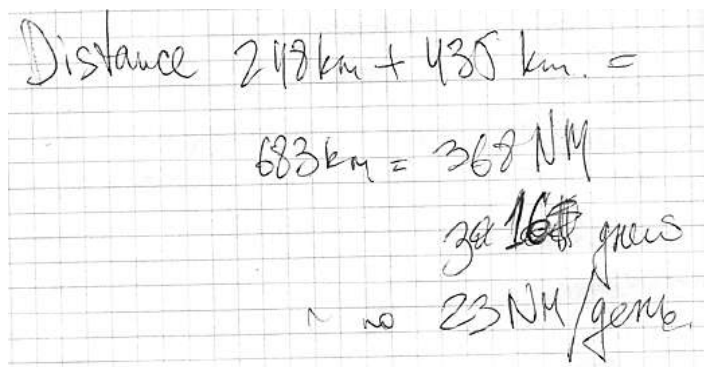 Distance 248km + 435 km. =
683km = 368 NM
за 16 дней
~ по 23 NM/день.